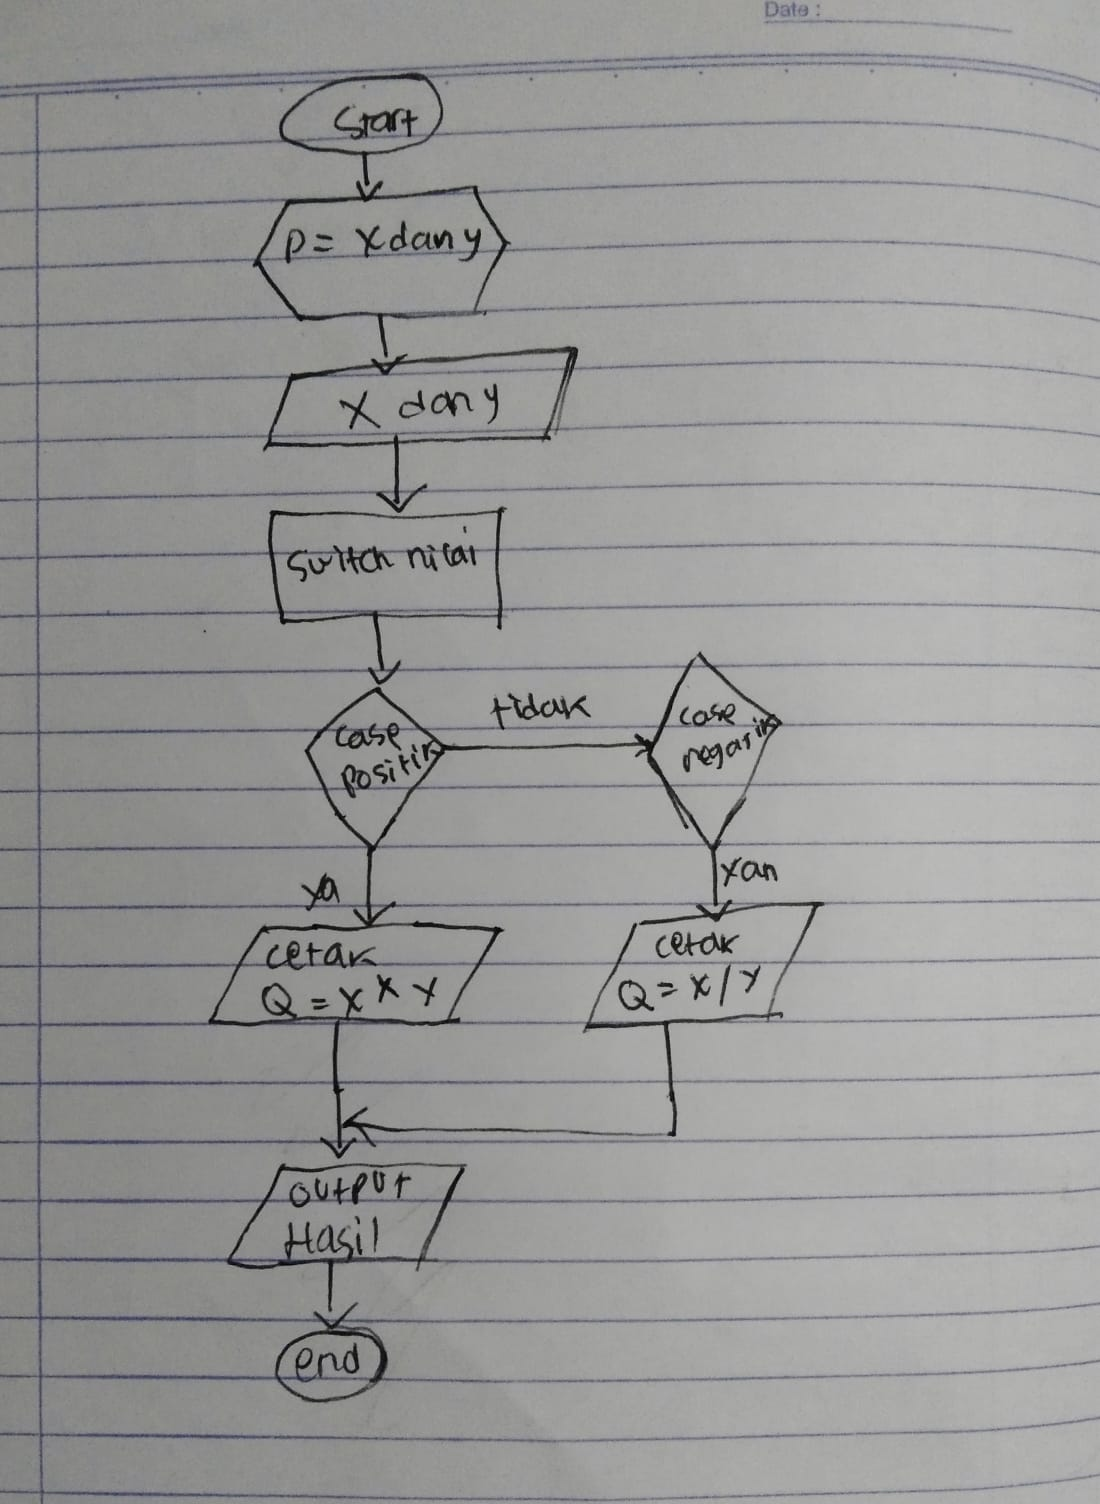 Date :
Start
P= X dan y
X dan y
Switch nilai
case
positif
tidak
case
negatif
ya
cetak
Q = X * Y
cetak
Q = X / Y
output
Hasil
end